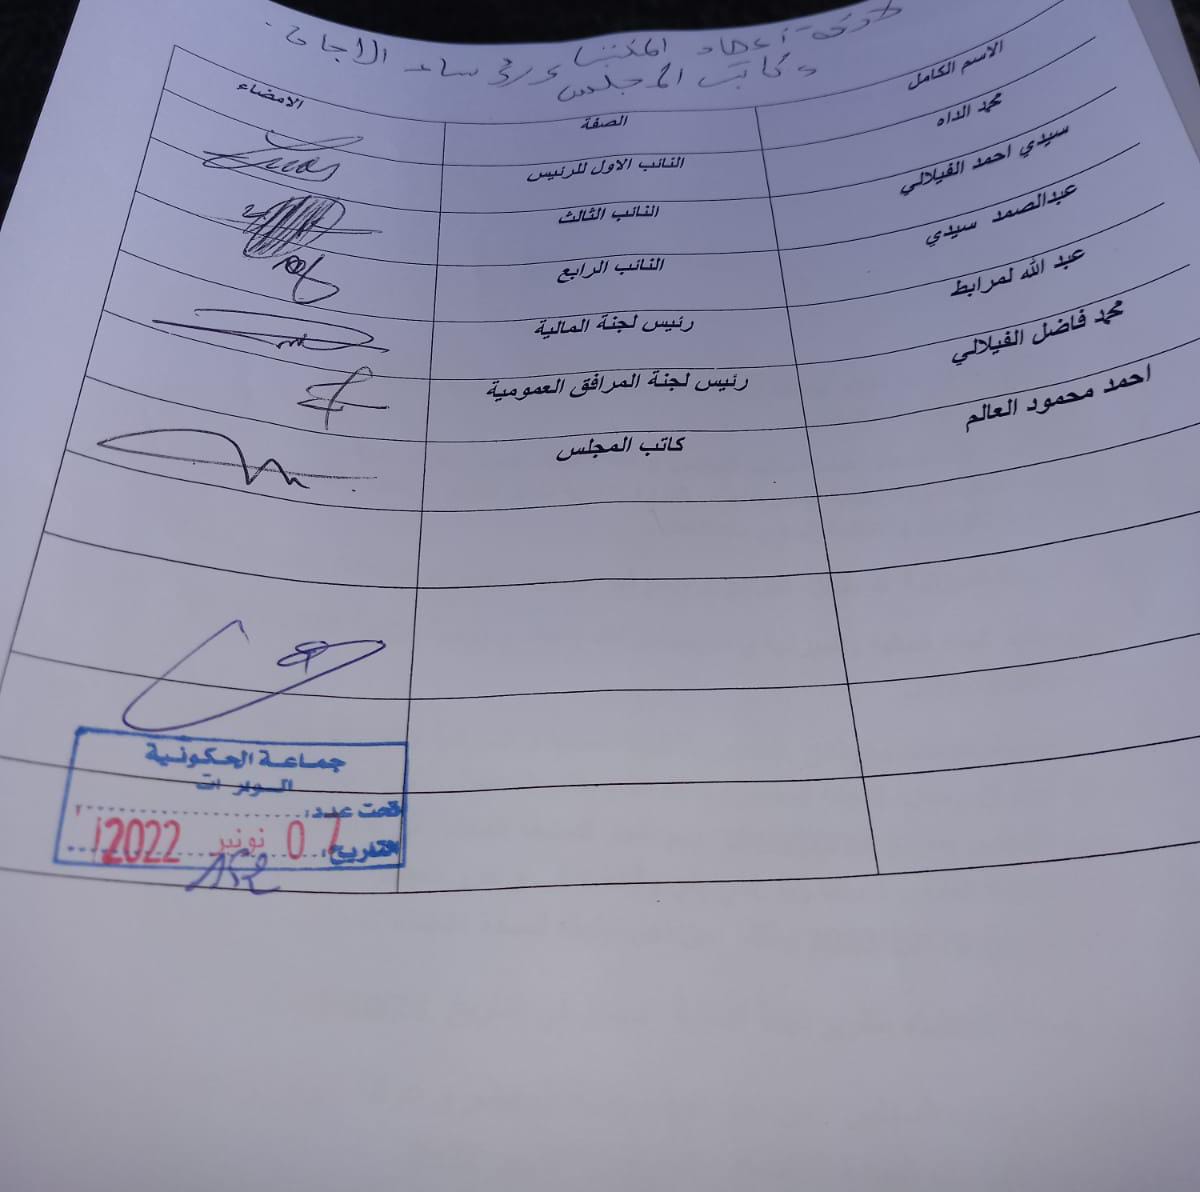 لائحة أعضاء المكتب ورؤساء اللجان
وكاتب المجلس
الاسم الكامل الصفة الامضاء
محمد الداه النائب الاول للرئيس
سيدي احمد الفيلالي النائب الثالث
عبدالصمد سيدي النائب الرابع
عبد الله لمرابط رئيس لجنة المالية
محمد فاضل الفيلالي رئيس لجنة المرافق العمومية
احمد محمود العالم كاتب المجلس
جماعة الحكونية
الواردات
تحت عدد:
التاريخ: 07 نونبر 2022
152